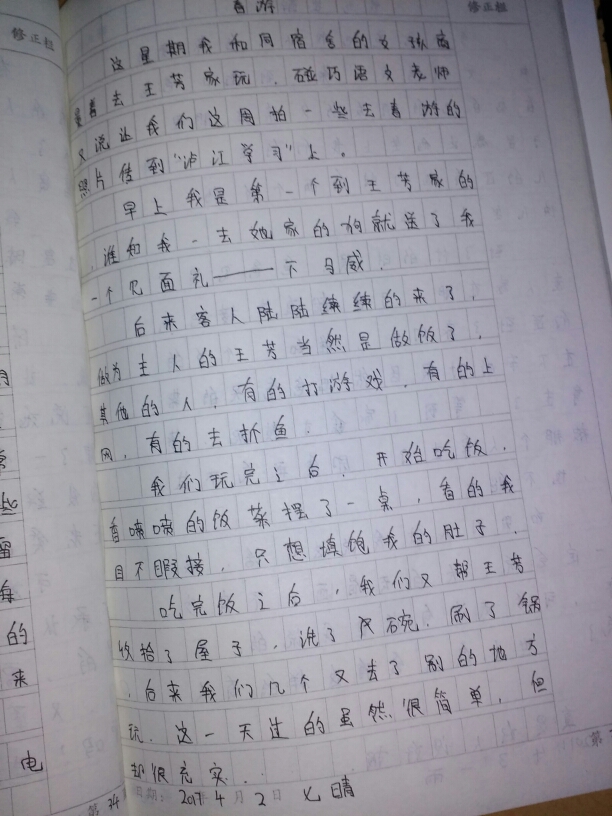 春游
修正栏
修正栏
这星期我和同宿舍的女孩商
量着去王芳家玩,碰巧语文老师
又说让我们这周拍一些去春游的
照片传到“沪江学习”上。
早上我是第一个到王芳家的
,谁知我一去她家的狗就送了我
一个见面礼——下马威.
后来客人陆陆续续的来了,
做为主人的王芳当然是做饭了,
其他的人,有的打游戏,有的上
网,有的去抓鱼.
我们玩完之后,开始吃饭,
香喷喷的饭菜摆了一桌,看的我
目不暇接,只想填饱我的肚子.
吃完饭之后,我们又帮王芳
收拾了屋子,洗了碗,刷了锅
,后来我们几个又去了别的地方
玩.这一天过的虽然很简单,但
却很充实..
第34 日期: 2017年4月2日 晴
的
来
电